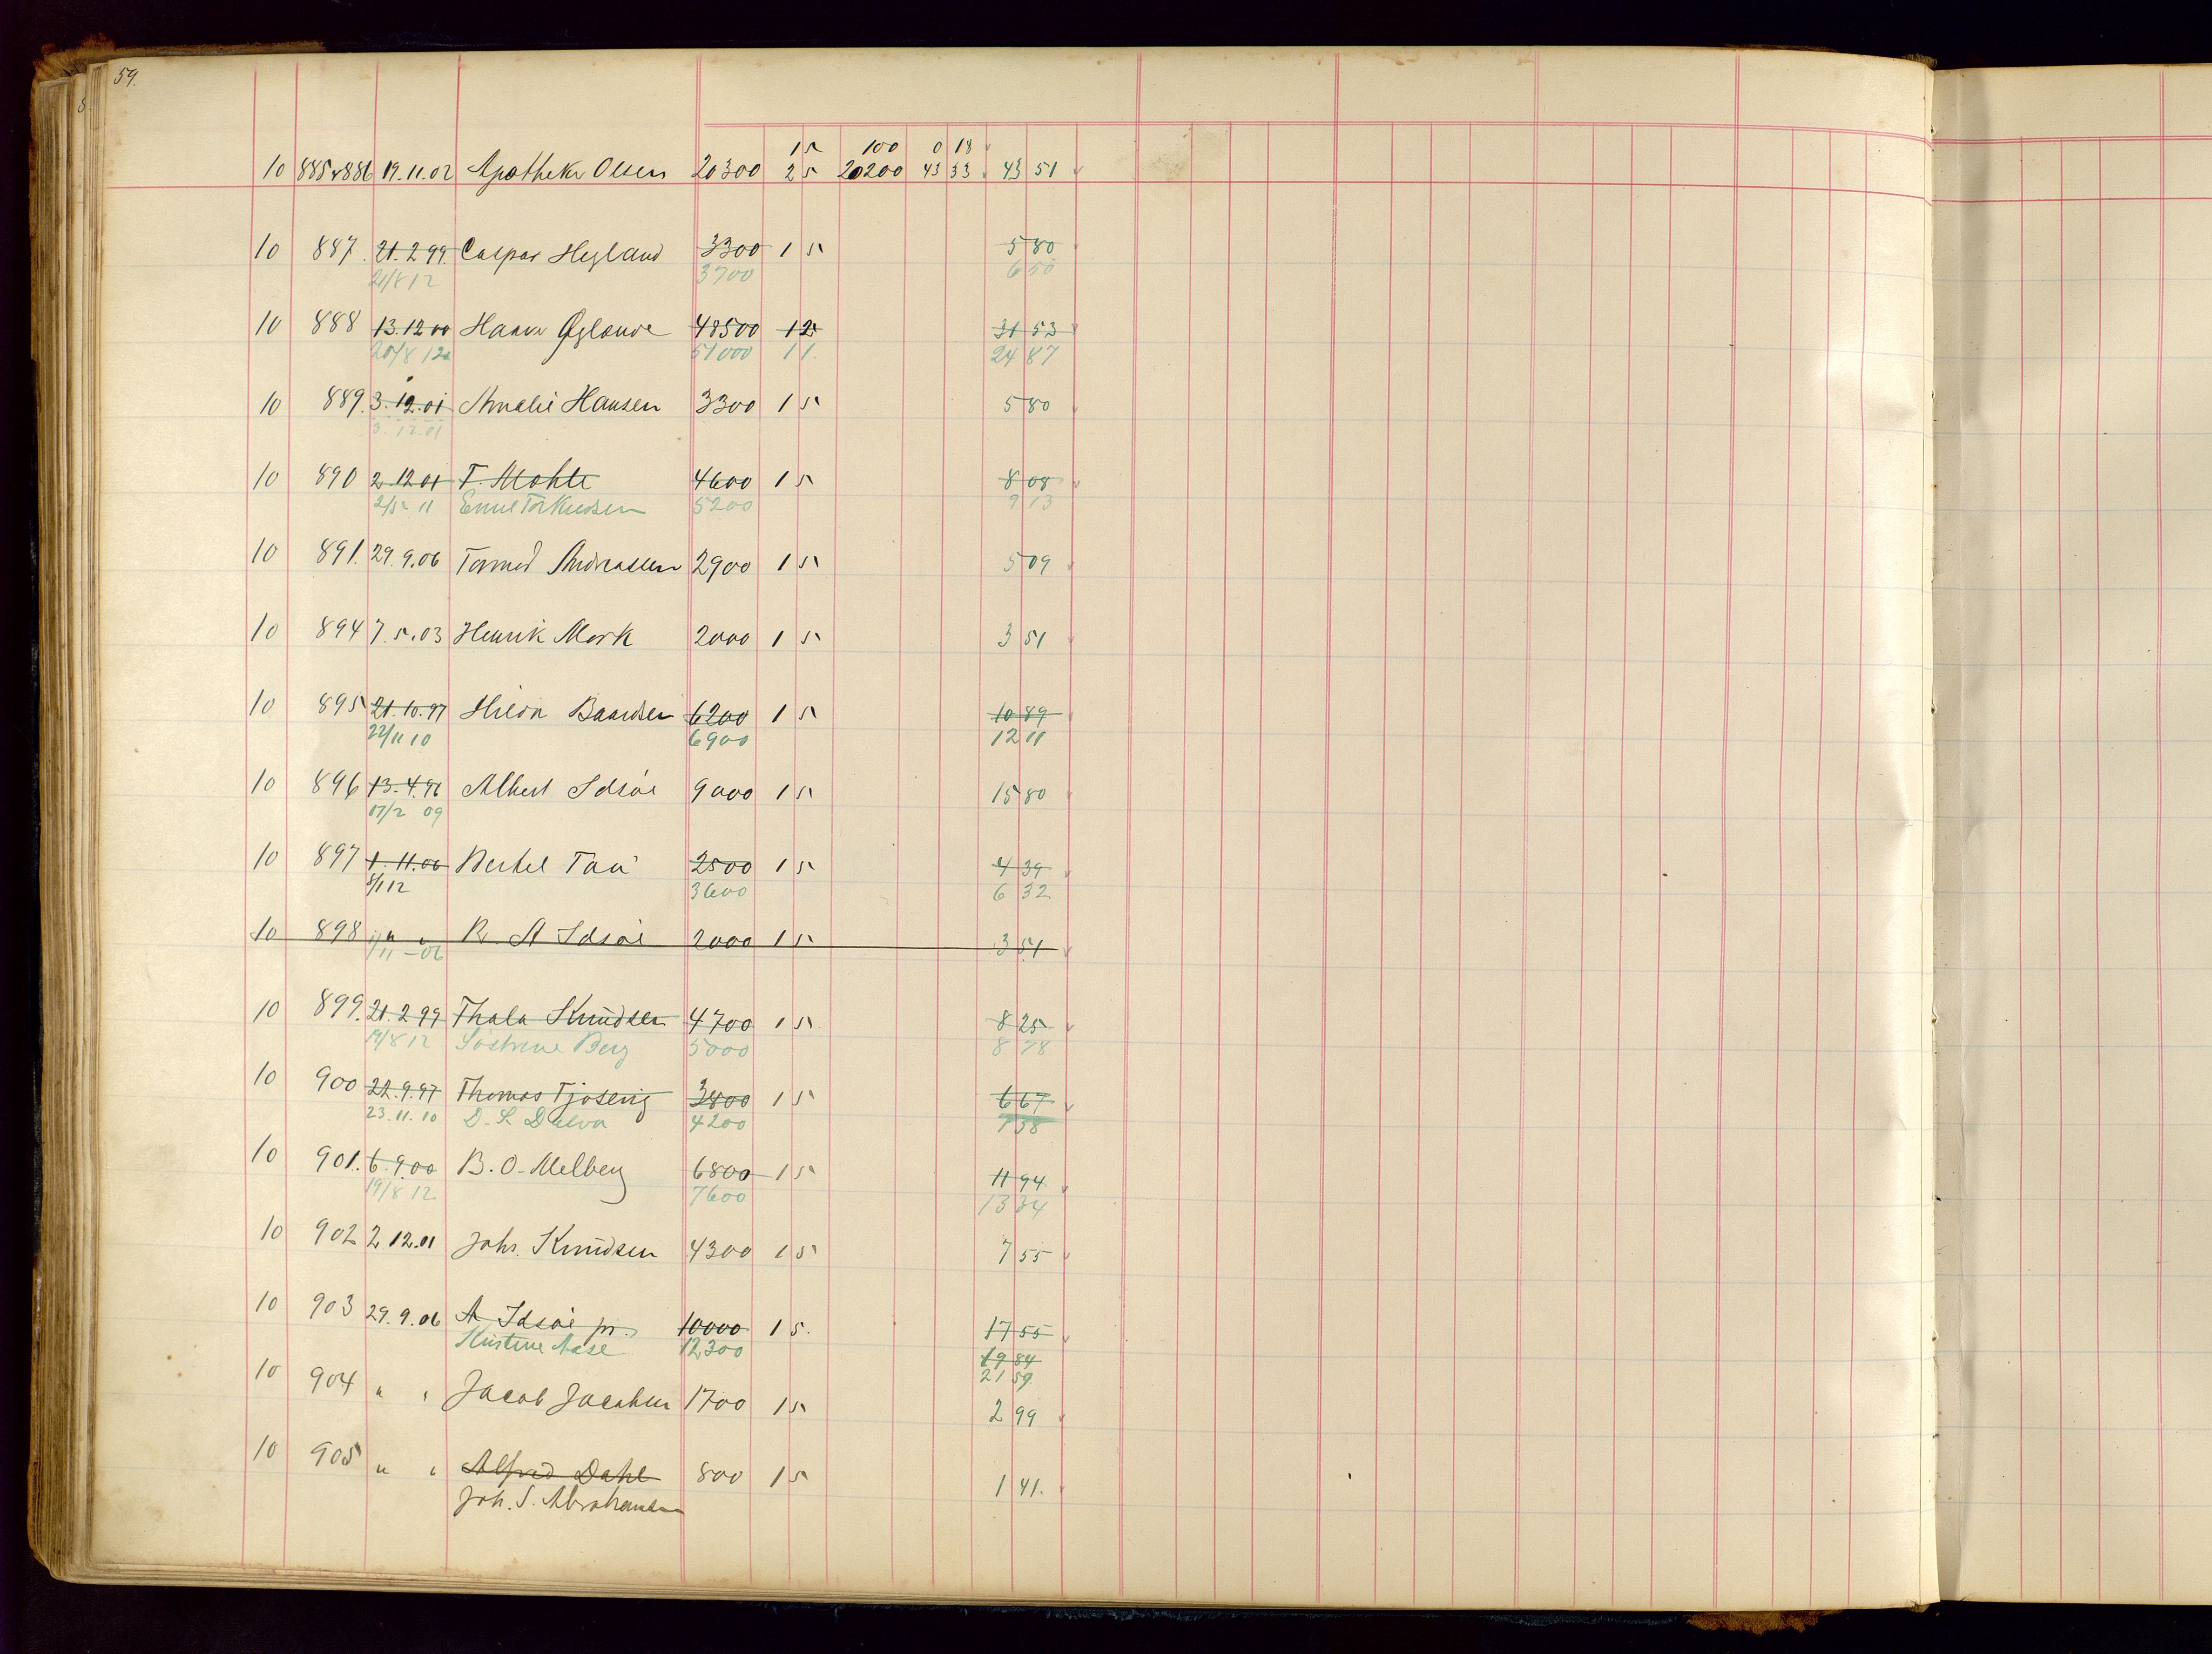 59.
15 100 0 18
10 885 & 886 19.11.02 Apotheker Olsen 20300 25 20200 43 33 43 51
10 887. 21.2 99. Caspar Hegland 3300 1 5 5 80
21/8 12 3700 6 50
10 888 13.12 00 48500 12 31 53
20/8 12 51000 11. 24 87
10 889. 3.12.01 Amalie Hansen 3300 1 5 5 80
3.12.01
10 890 2.12 01 4600 1 5 8 08
2/5 11 5200 9 13
10 891. 29.9.06 Tormod Andreassen 2900 1 5 5 09
10 894 7.5.03 Henrik Mork 2000 1 5 3 51
10 895 21.10.97 Hilda Baardsen 6200 1 5 10 89
22/11 10 6900 12 11
10 896 13.4.96 Albert Idsøe 9000 1 5 15 80
17/2 09
10 897 1.11.06 Bertel Tau 2500 1 5 4 39
8/1 12 3600 6 32
10 898 " " R. A Idsøe 2000 1 5 3 51
1/11-06
10 899. 21.2 99 Thala Knudsen 4700 1 5 8 25
19/8 12 Berg 5000 8 78
10 900 22.9.97 Thomas Tjøseng 3800 1 5 6 67
23.11.10 4200 7 38
10 901. 6.9.00 B.O. Melberg 6800 1 5 11 94
19/8 12 7600 13 34
10 902 2 12.01 Johs. Knudsen 4300 1 5 7 55
10 903 29.9.06 A Idsøe jr. 10000 1 5. 17 55
Kirstine Aase 12300 19 84
21 59
10 904 " " Jacob Jacobsen 1700 1 5 2 99
10 905 " " Alfred Dahl 800 1 5 1 41.
Joh. S. Abrahamsen